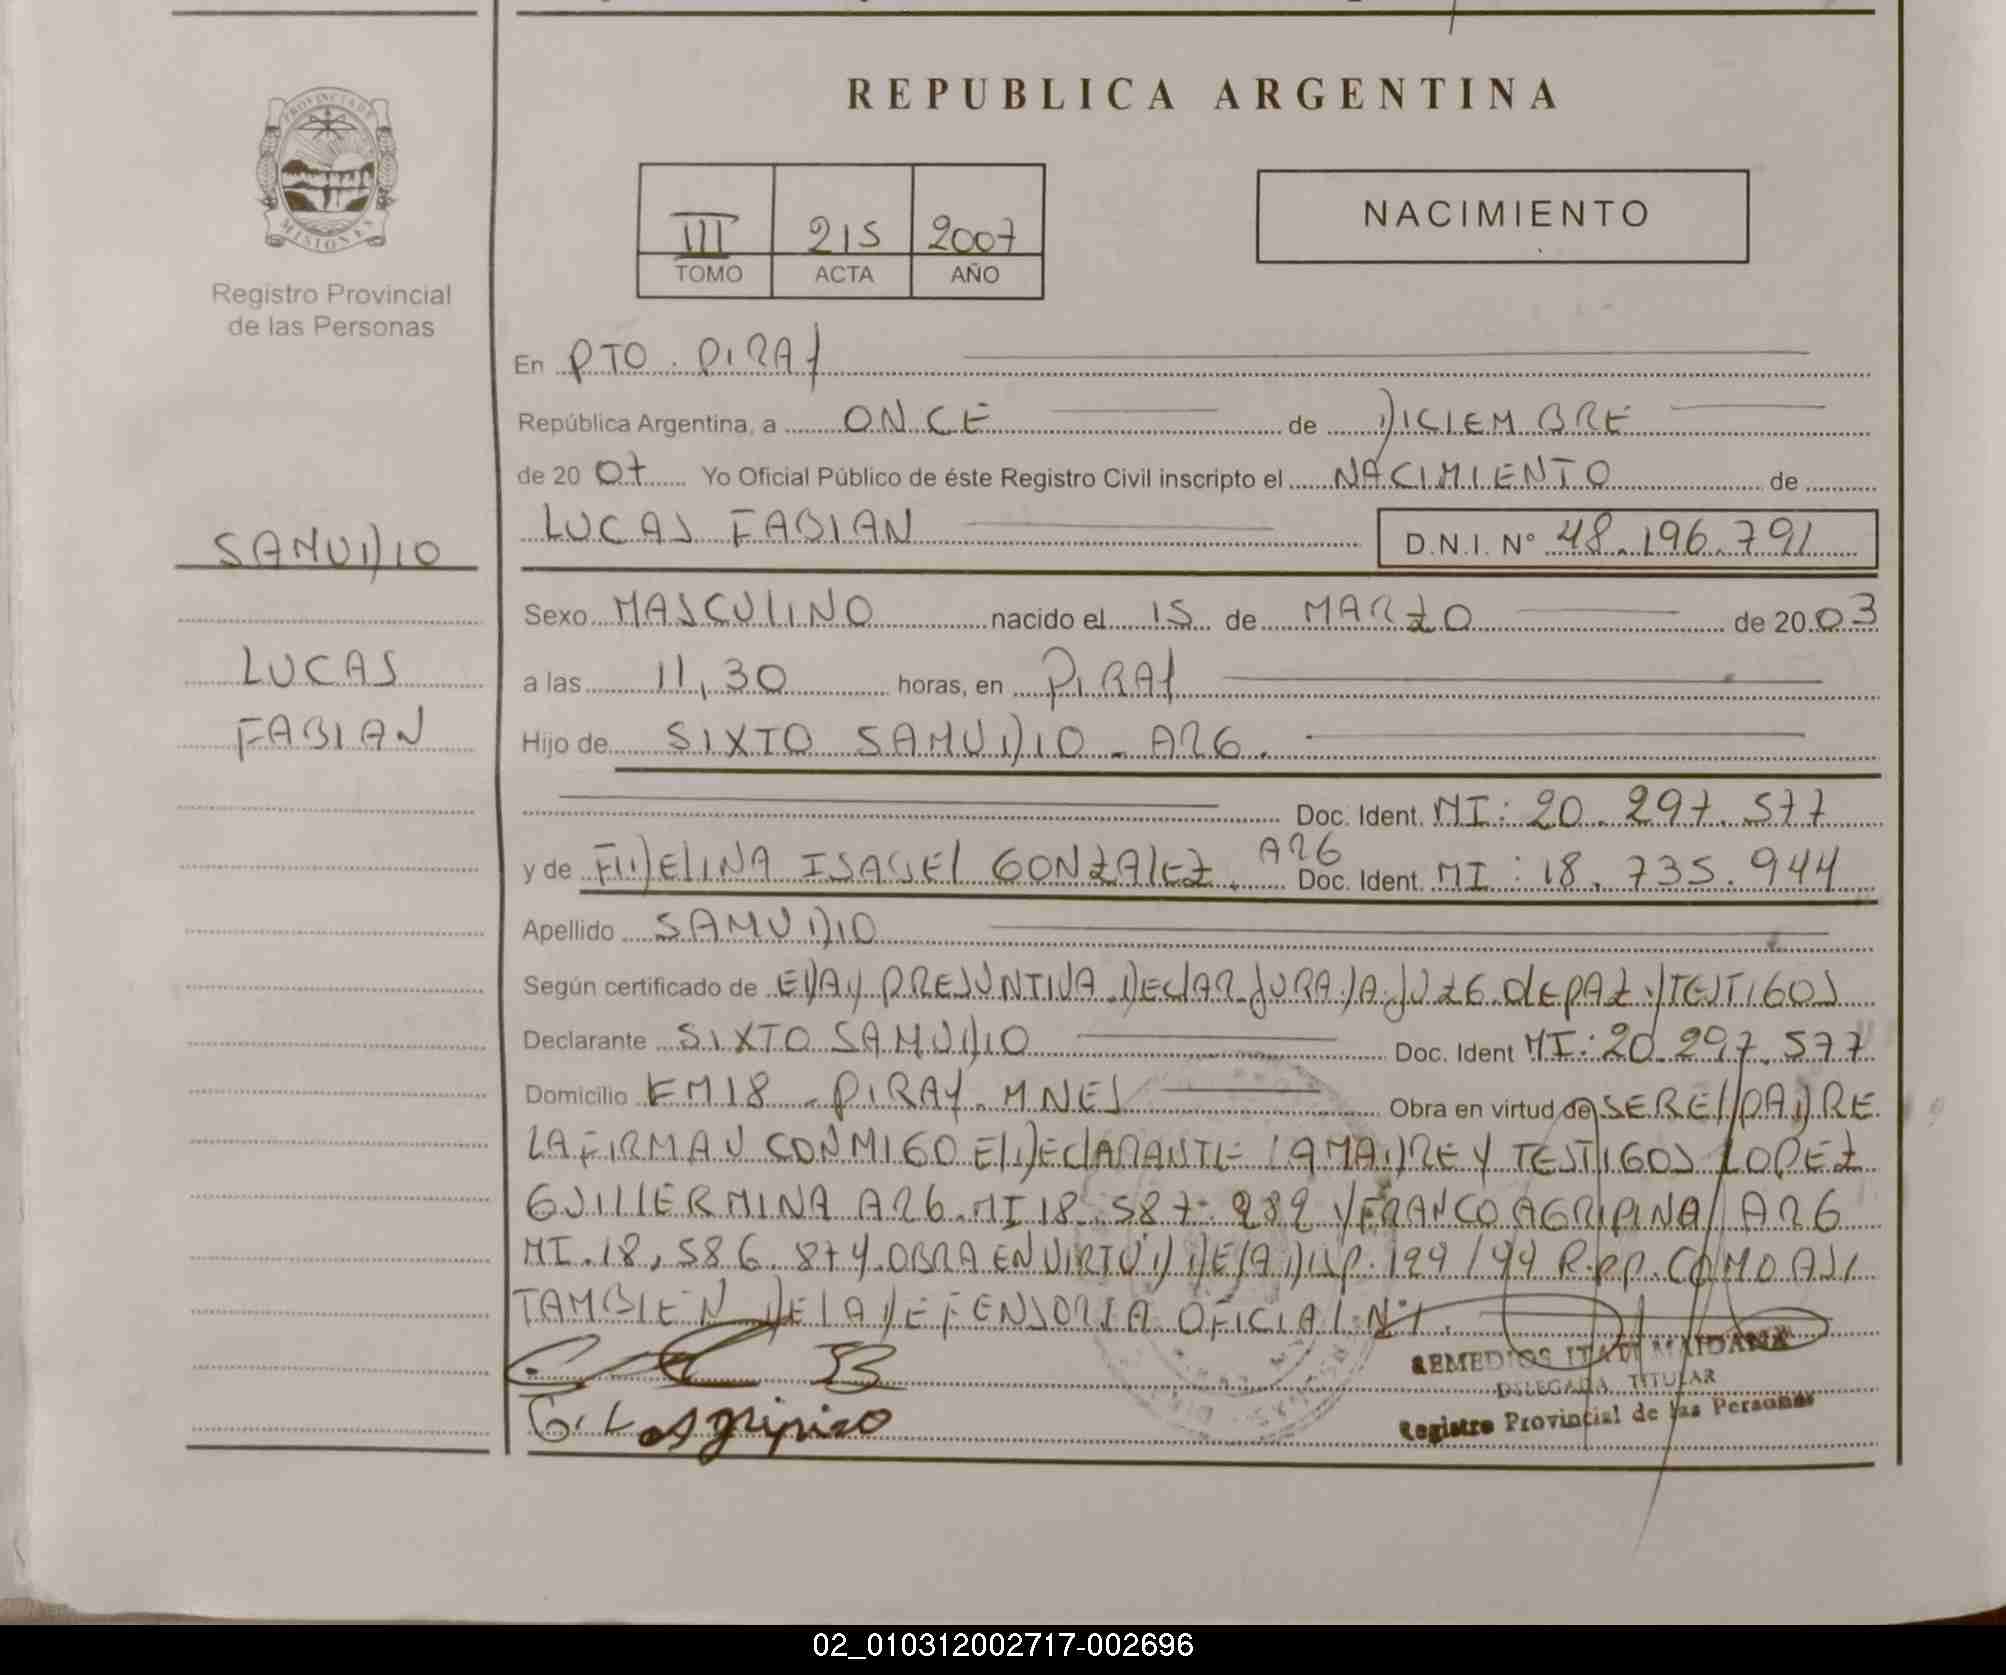 REPUBLICA ARGENTINA
PROVINCIA DE
MISIONES
Registro Provincial
de las Personas
III 215 2007
TOMO ACTA AÑO
NACIMIENTO
En PTO. PIRAY
República Argentina, a ONCE de DICIEMBRE
de 2007 Yo Oficial Público de éste Registro Civil inscripto el NACIMIENTO de
LUCAS FABIAN D.N.I. N° 48.196.791
SAMUDIO
LUCAS
FABIAN
Sexo MASCULINO nacido el 15 de MARZO de 2003
a las 11,30 horas, en PIRAY
Hijo de SIXTO SAMUDIO - ARG.
Doc. Ident. MI: 20.297.577
y de FIDELINA ISABEL GONZALEZ. ARG Doc. Ident. MI: 18.735.944
Apellido SAMUDIO
Según certificado de EDAD PRESUNTIVA DECLAR JURADA JUZG. DE PAZ Y TESTIGOS
Declarante SIXTO SAMUDIO Doc. Ident MI: 20.297.577
Domicilio KM 18 - PIRAY - MNES Obra en virtud de SER EL PADRE
LA FIRMAN CONMIGO EL DECLARANTE LA MADRE Y TESTIGOS LOPEZ
GUILLERMINA ARG. MI 18.587.282 Y FRANCO AGRIPINA ARG
MI. 18,586.874. OBRA EN VIRTUD DE LA DISP. 199/99 R.P.P. COMO ASI
TAMBIEN DE LA DEFENSORIA OFICIAL N°1.
G. L Agripina
REMEDIOS ITATI MAIDANA
DELEGADA TITULAR
Registro Provincial de las Personas
02_010312002717-002696